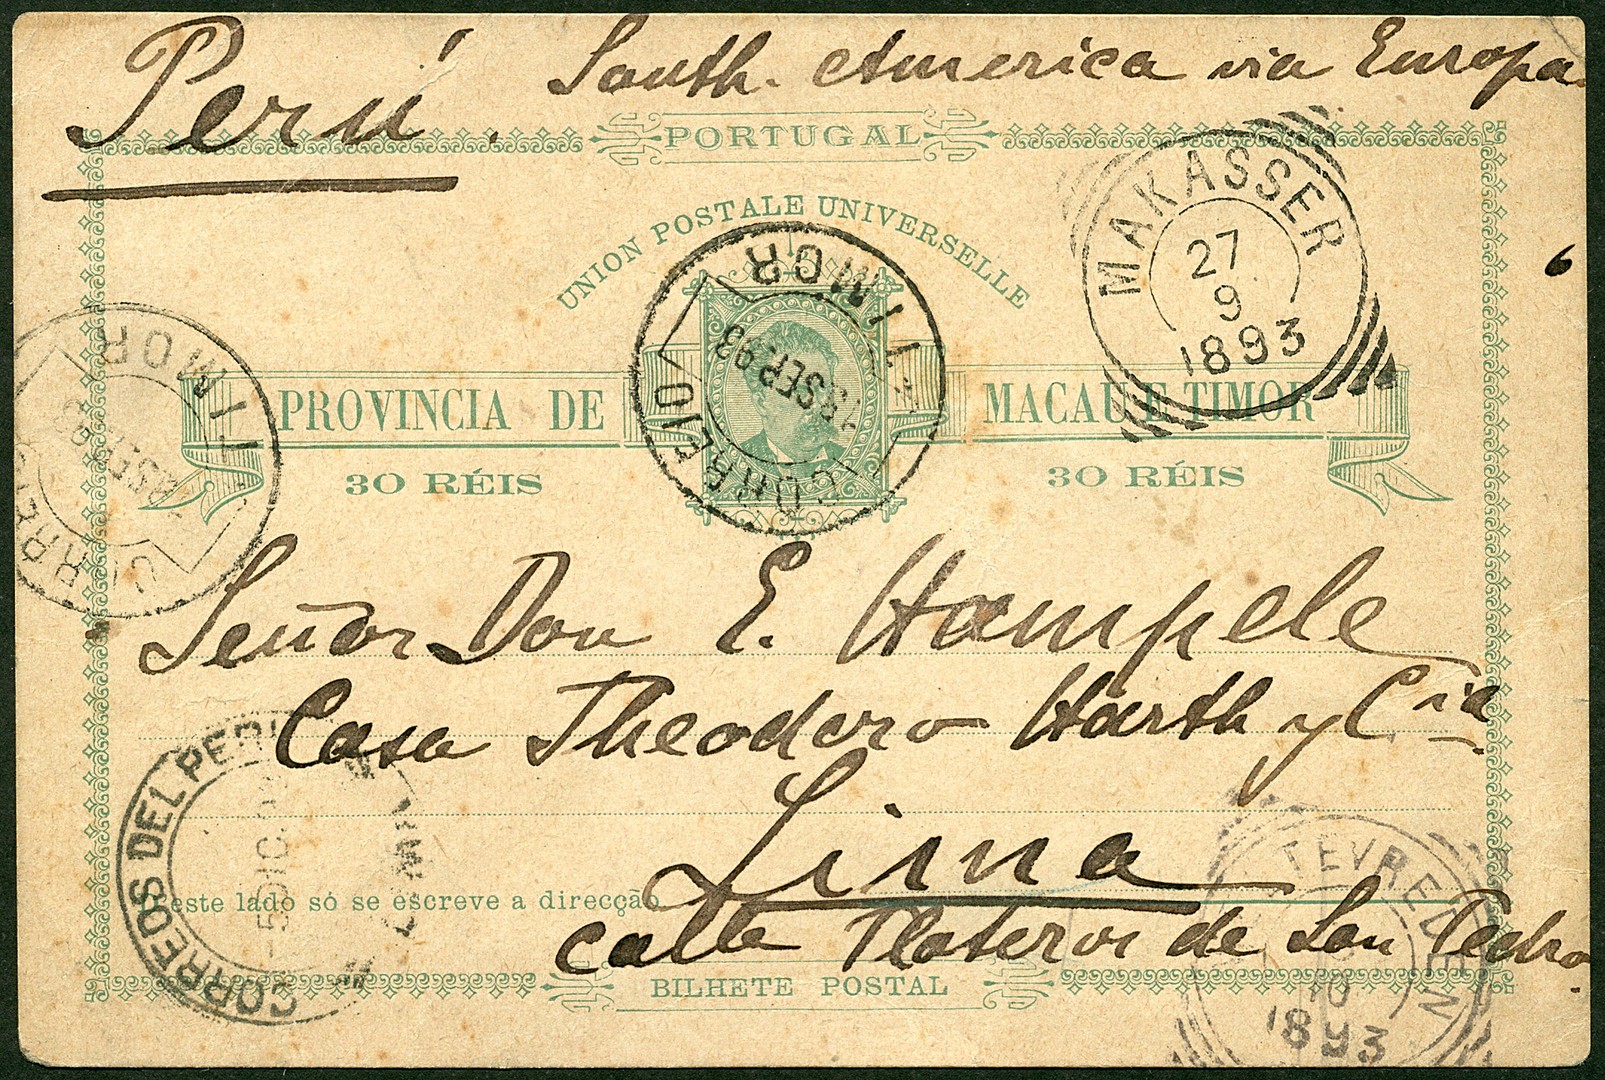 Perú. South. America via Europa.
PORTUGAL
UNION POSTALE UNIVERSELLE
MAKASSER
27
9
1893
6
CORREIO TIMOR
SEP. 93
TIMOR
PROVINCIA DE MACAU E TIMOR
30 RÉIS 30 RÉIS
Señor Don E. Hampele
Casa Theodoro Harth y Cia
Lima
calle Plateros de San Pedro.
CORREOS DEL PERU
5 DIC
LIMA
N'este lado só se escreve a direcção
WELTEVREDEN
10
1893
BILHETE POSTAL